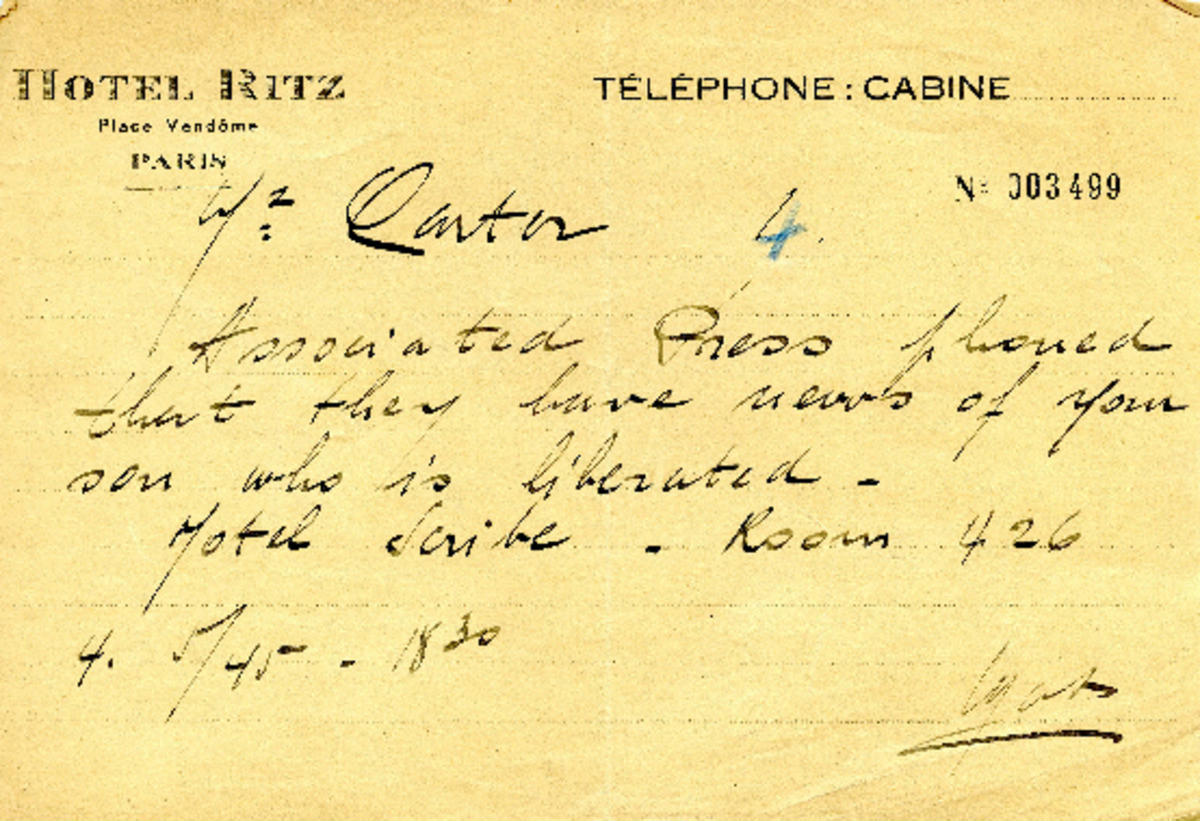 HOTEL RITZ
Place Vendôme
PARIS
TÉLÉPHONE : CABINE
Nº 003499
Mr Carter 4.
Associated Press phoned
that they have news of your
son who is liberated -
Hotel Scribe - Room 426
4. 5/45 - 18 30